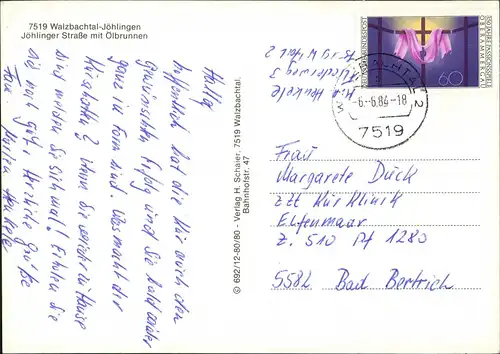 7519 Walzbachtal-Jöhlingen
Jöhlinger Straße mit Ölbrunnen
Hallo
hoffentlich hat die Kur auch den
gewünschten Erfolg und Sie bald wieder
ganz in Form sind. Was macht der
? Wenn Sie wieder zu Hause
sind melden Sie sich mal! Erholen Sie
sich noch gut! Herzliche Grüße
© 692/12-80/80 - Verlag H. Schaier, 7519 Walzbachtal.
Bahnhofstr. 47
60
-6.-6.84-18
7519
2
Frau
Margarete Dück
ztt Kur Klinik
Elfenmaar
Z. 510 Pf 1280
5582 Bad Bertrich